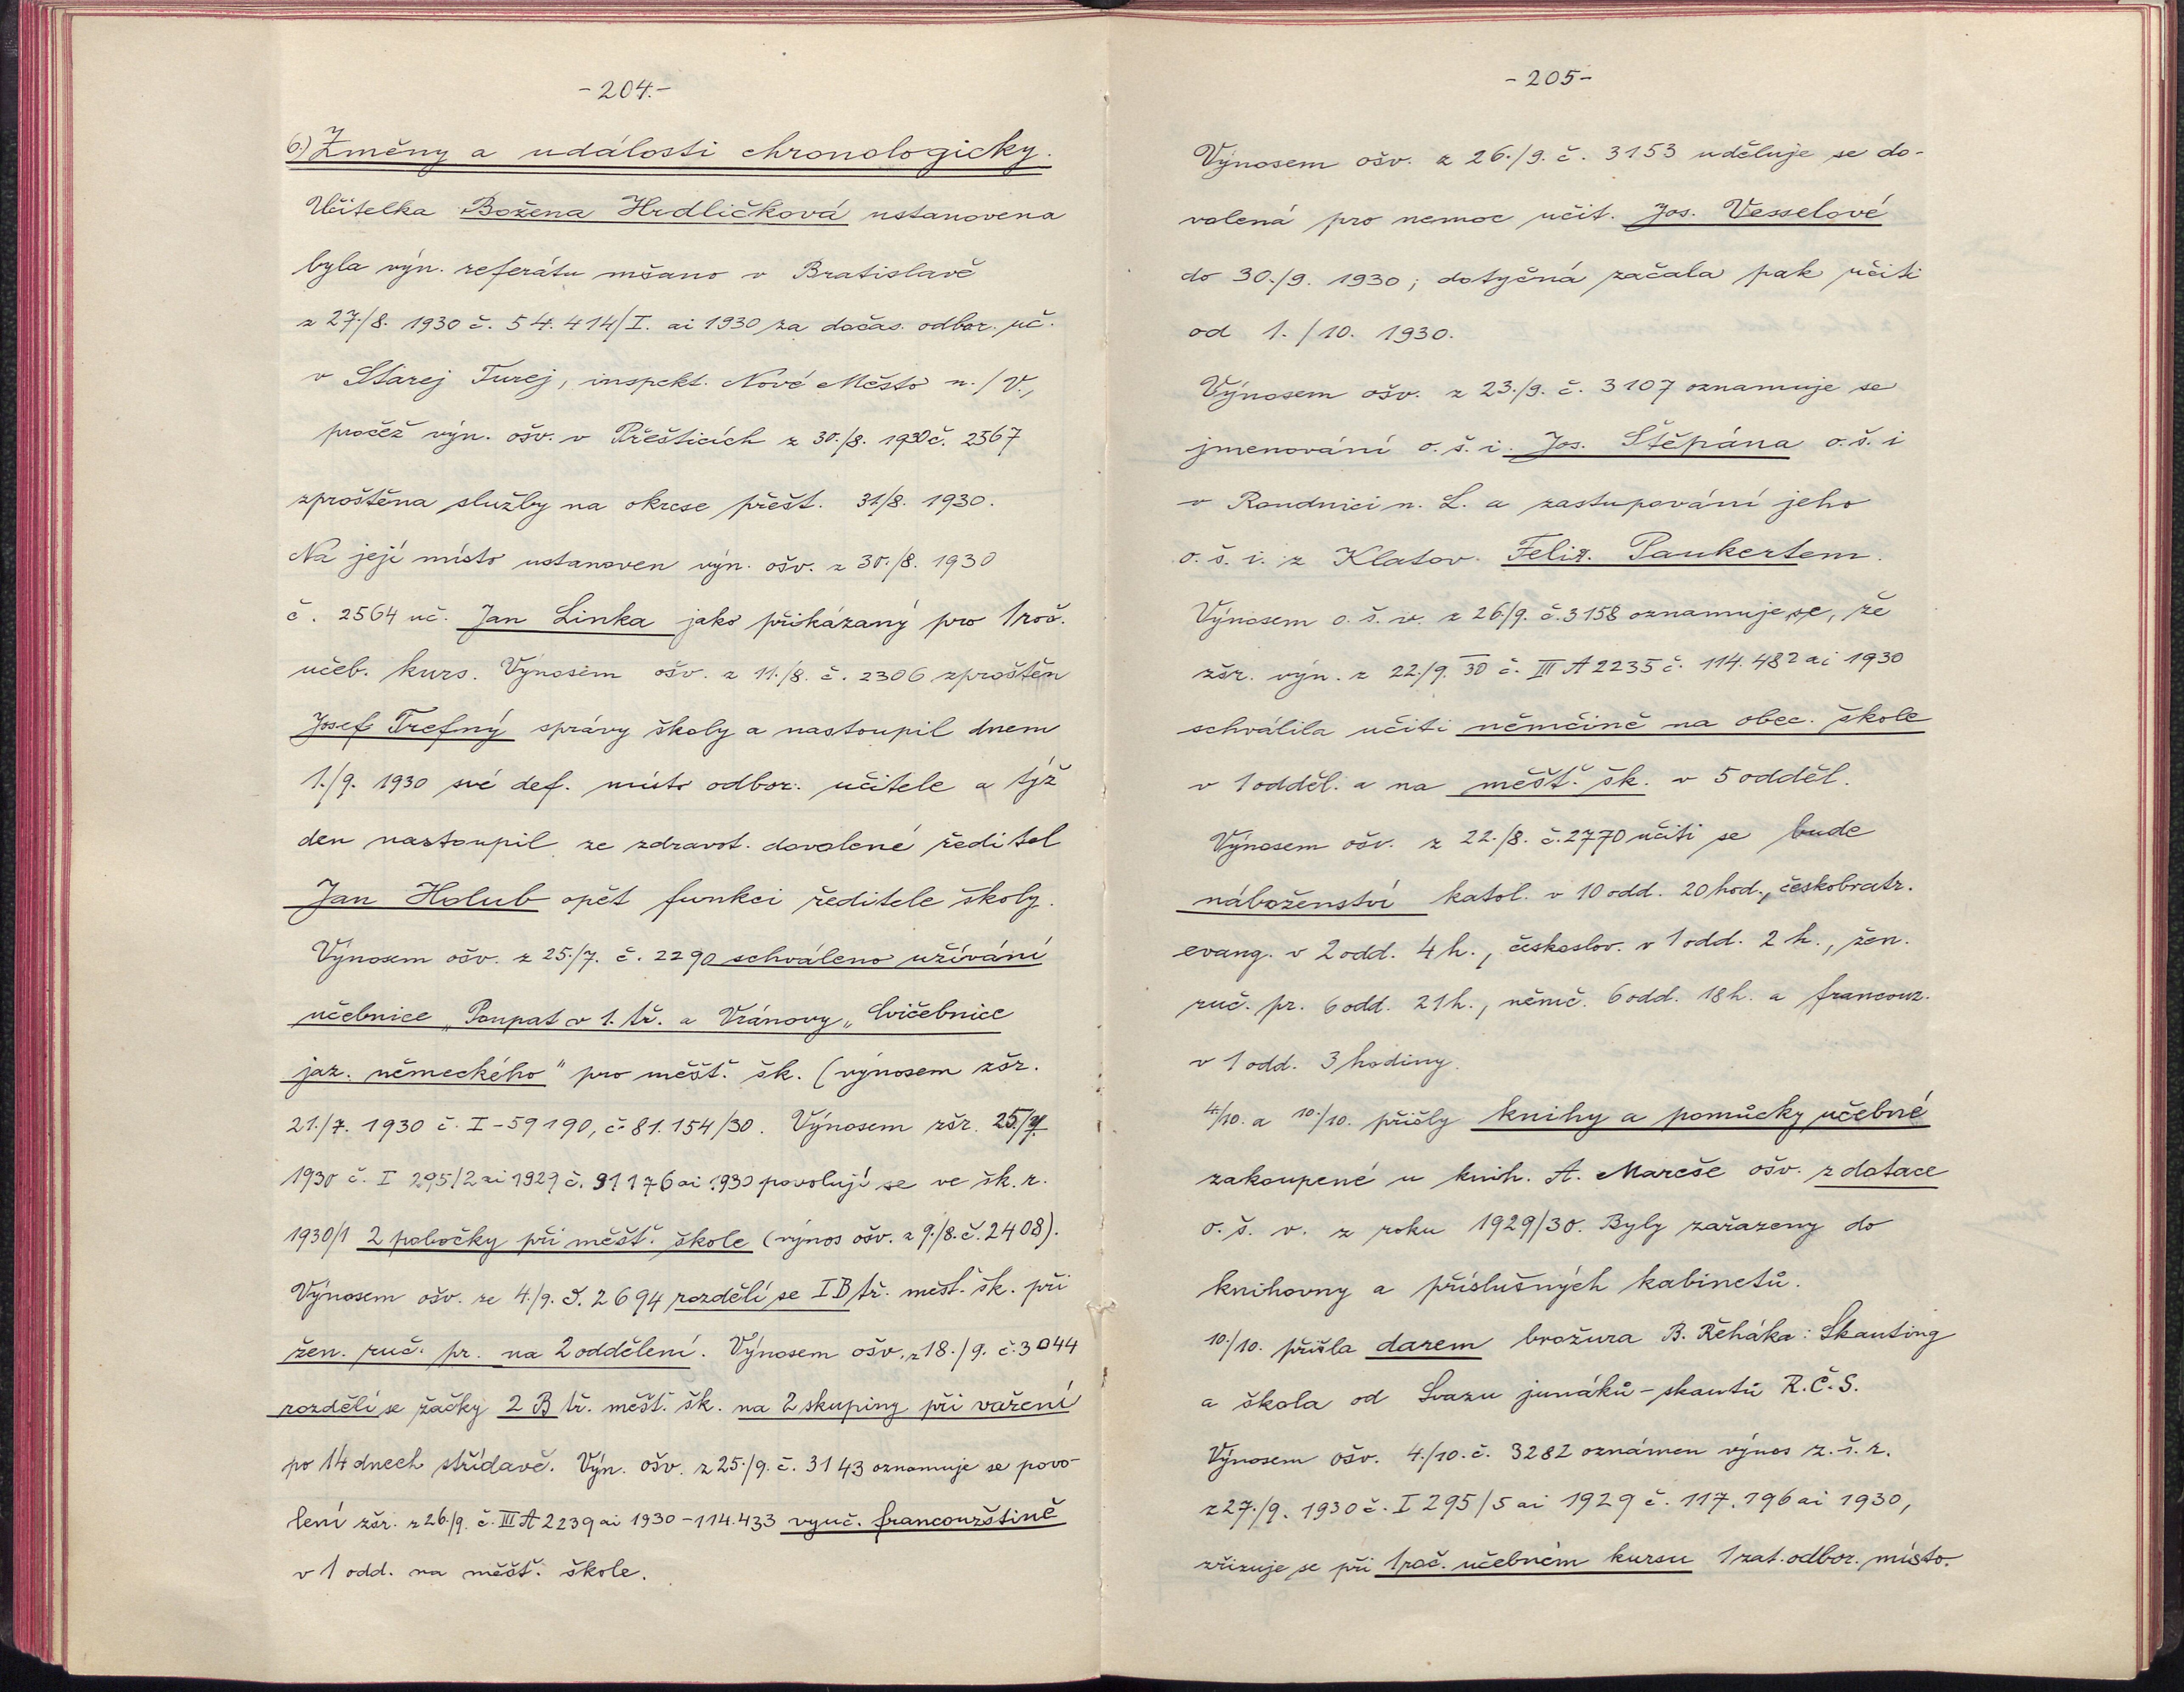 -204.-
6.) Změny a události chronologicky.
Učitelka Božena Hrdličková ustanovena
byla výn. referátu mšano v Bratislavě
z 27./8. 1930 č. 54.414/I. ai 1930 za dočas. odbor. uč.
v Starej Turej, inspekt. Nové Město n./V.,
pročež výn. ošv. v Přešticích z 30./8. 1930 č. 2567
zproštěna služby na okrese přešt. 31/8. 1930.
Na její místo ustanoven výn. ošv. z 30./8. 1930
č. 2564 uč. Jan Linka jako přikázaný pro 1 roč.
učeb. kurs. Výnosem ošv. z 11./8. č. 2306 zproštěn
Josef Trefný správy školy a nastoupil dnem
1./9. 1930 své def. místo odbor. učitele a týž
den nastoupil ze zdravot. dovolené ředitel
Jan Holub opět funkci ředitele školy.
Výnosem ošv. z 25./7. č. 2290 schváleno užívání
učebnice „Poupat v 1. tř. a Vránovy „Cvičebnice
jaz. německého" pro měšť. šk. (výnosem zšr.
21./7. 1930 č. I-59190, č. 81.154/30. Výnosem zšr. 25./7.
1930 č. I 295/2 ai 1929 č. 91176 ai 1930 povolují se ve šk. r.
1930/1 2 pobočky při měšť. škole (výnos ošv. z 9./8. č. 2408).
Výnosem ošv. ze 4./9. č. 2694 rozdělí se I B tř. měšť. šk. při
žen. ruč. pr. na 2 oddělení. Výnosem ošv. z 18./9. č. 3044
rozdělí se žačky 2 B tř. měšť. šk. na 2 skupiny při vaření
po 14 dnech střídavě. Výn. ošv. z 25./9. č. 3143 oznamuje se povo-
lení zšr. z 26./9. č. III A 2239 ai 1930 - 114.433 vyuč. francouzštině
v 1 odd. na měšť. škole.
-205-
Výnosem ošv. z 26./9. č. 3153 uděluje se do-
volená pro nemoc učit. Jos. Vesselové
do 30./9. 1930; dotyčná začala pak učiti
od 1./10. 1930.
Výnosem ošv. z 23./9. č. 3107 oznamuje se
jmenování o. š. i. Jos. Štěpána o. š. i
v Roudnici n. L. a zastupování jeho
o. š. i. z Klatov. Felix. Paukertem.
Výnosem o. š. v. z 26/9. č. 3158 oznamuje se, že
zšr. výn. z 22./9. 30 č. III A 2235 č. 114.482 ai 1930
schválila učiti němčině na obec. škole
v 1 odděl. a na měšť. šk. v 5 odděl.
Výnosem ošv. z 22./8. č. 2770 učiti se bude
náboženství katol. v 10 odd. 20 hod., českobratr.
evang. v 2 odd. 4 h., českoslov. v 1 odd. 2 h., žen.
ruč. pr. 6 odd. 21 h., němč. 6 odd. 18 h. a francouz.
v 1 odd. 3 hodiny.
4./10. a 10./10. přišly knihy a pomůcky učebné
zakoupené u knih. A. Mareše ošv. z dotace
o. š. v. z roku 1929/30. Byly zařazeny do
knihovny a příslušných kabinetů.
10./10. přišla darem brožura B. Řeháka: Skauting
a škola od Svazu junáků - skautů R.Č.S.
Výnosem ošv. 4./10. č. 3282 oznámen výnos z. š. r.
z 27./9. 1930 č. I 295/5 ai 1929 č. 117.196 ai 1930,
zřizuje se při 1 roč. učebném kursu 1 zat. odbor. místo.